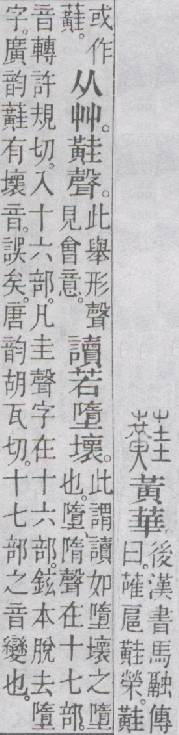 黃華
後漢書馬融傳
曰。蓶扈蘳熒。蘳
或作
蘳。
从艸。黊聲。
此舉形聲
見會意。
讀若墮壞。
此謂讀如墮壞之墮
也。墮隋聲在十七部。
音轉許規切。入十六部。凡圭聲字在十六部。鉉本脫去墮
字。廣韵蘳有壞音。誤矣。唐韵胡瓦切。十七部之音變也。